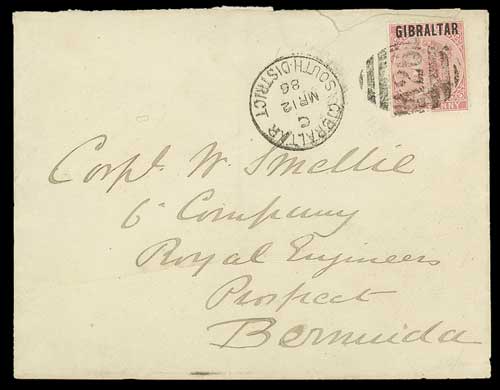 GIBRALTAR
PENNY
GIBRALTAR SOUTH·DISTRICT
C
MR 12
86
Corpl. W. Smellie
6th Company
Royal Engineers
Prospect
Bermuda